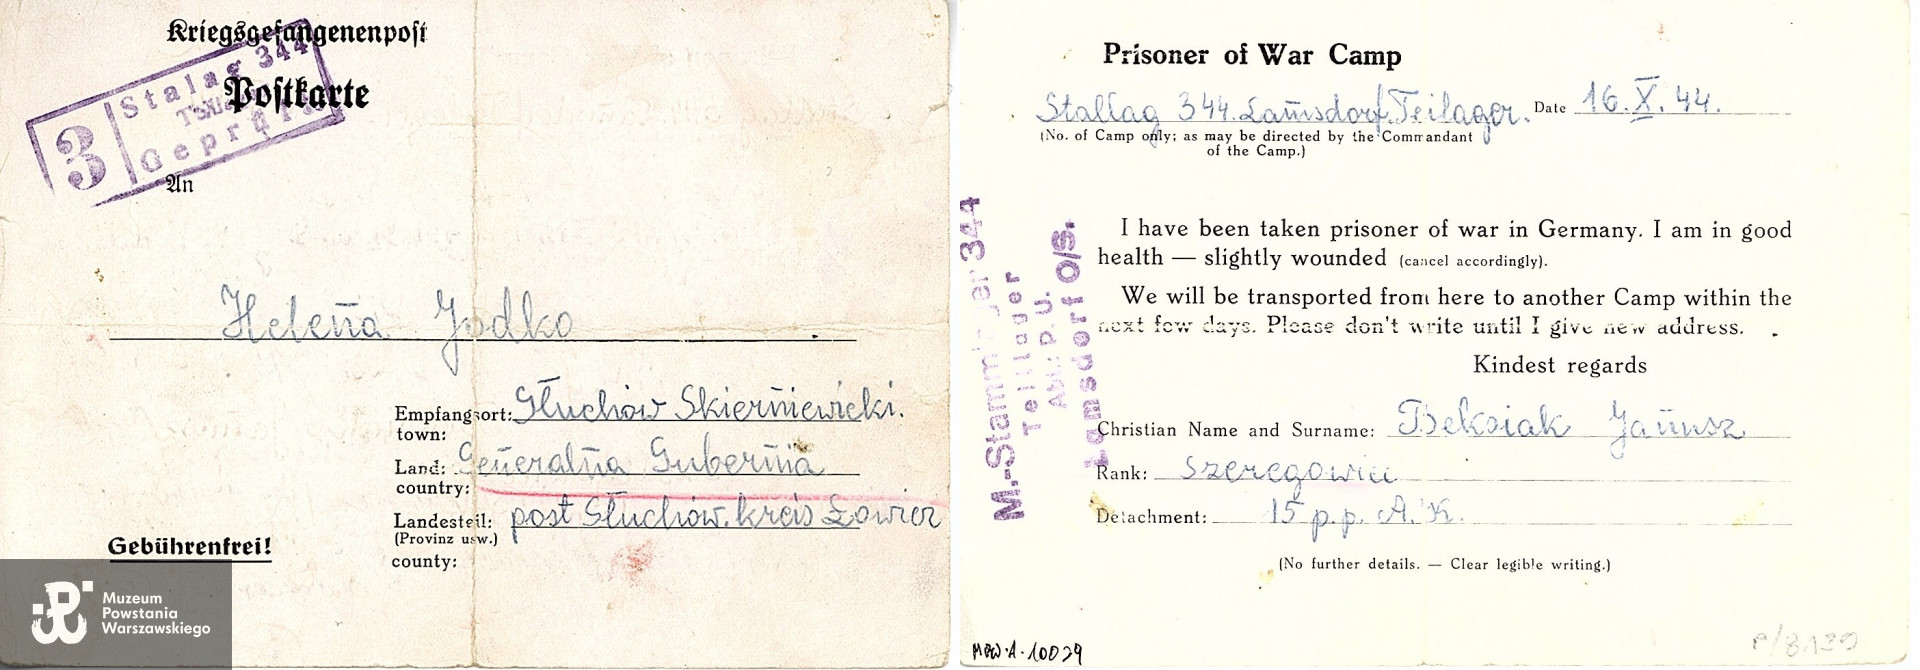 Kriegsgefangenenpost
Postkarte
3
Stalag 344
Geprüft
An
Helena Jodko
Empfangsort: Głuchów Skierniewicki.
town:
Land: Generalna Gubernia
country:
Landesteil: post Głuchów. kreis Łowicz
(Provinz usw.)
county:
Gebührenfrei!
Muzeum
Powstania
Warszawskiego
Prisoner of War Camp
Stallag 344. Lamsdorf. Teilager. Date 16.X.44.
(No. of Camp only; as may be directed by the Commandant
of the Camp.)
I have been taken prisoner of war in Germany. I am in good
health — slightly wounded (cancel accordingly).
We will be transported from here to another Camp within the
next few days. Please don't write until I give new address.
Kindest regards
Christian Name and Surname: Beksiak Janusz
Rank: Szeregowiec
Detachment: 15 p.p. A.K.
(No further details. — Clear legible writing.)
M.-Stammlager 344
Teillager
Abw. P. U.
Lamsdorf O/S.
MPW·A·10029
P/8139